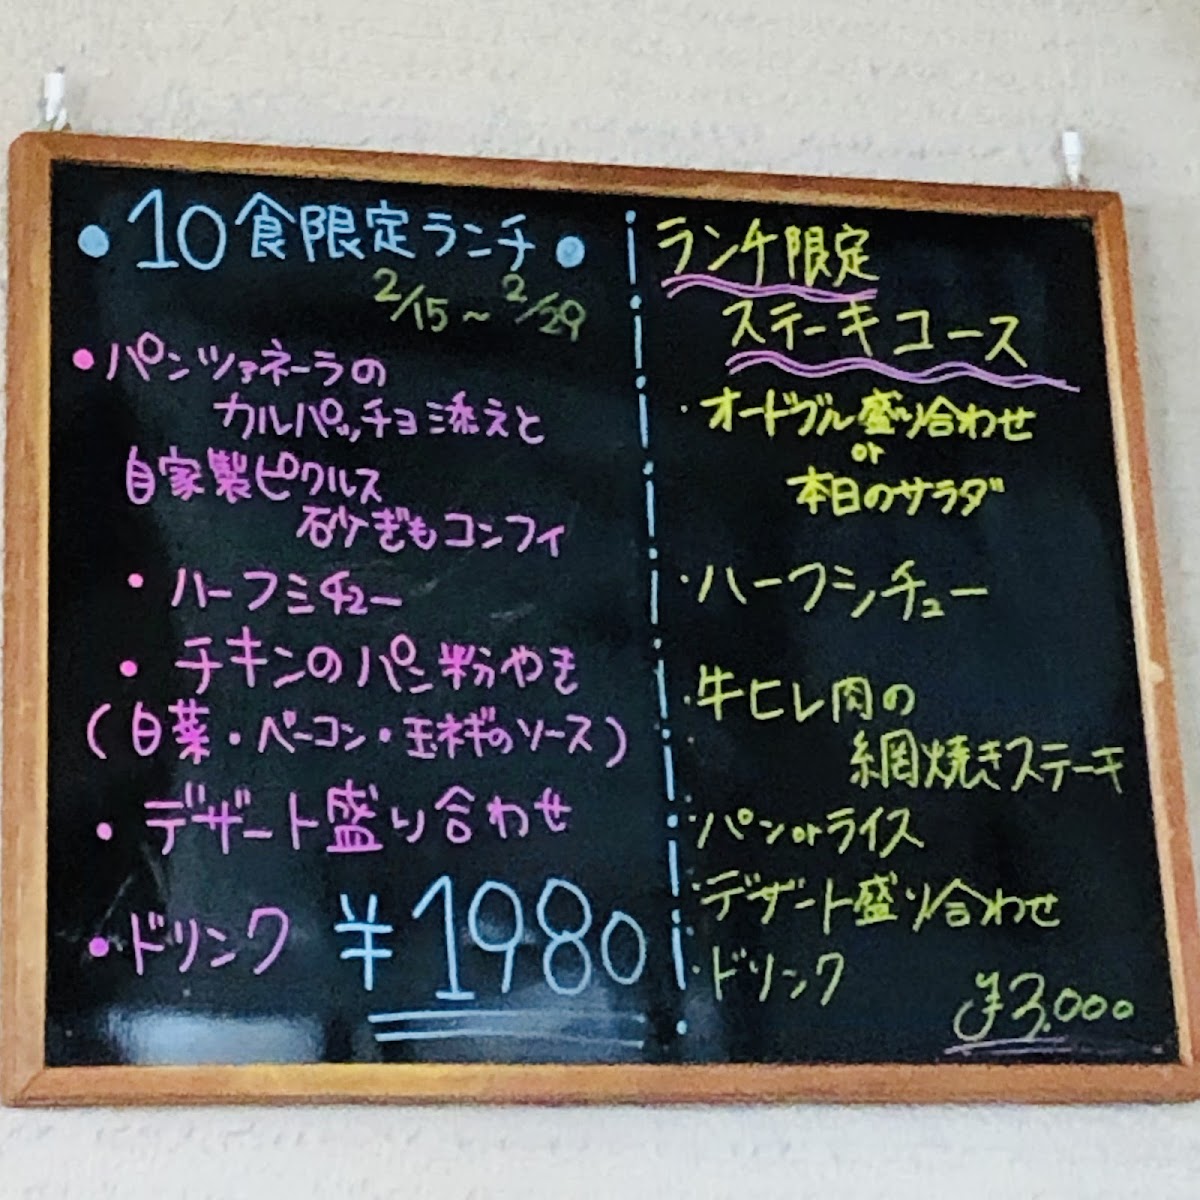 ●10食限定ランチ●
2/15～2/29
●パンツァネーラの
カルパッチョ添えと
自家製ピクルス
砂ずぎもコンフィ
・ハーフシチュー
・チキンのパン粉やき
(白菜・ベーコン・玉ネギのソース)
・デザート盛り合わせ
・ドリンク ¥1980
ランチ限定
ステーキコース
・オードブル盛り合わせ
or
本日のサラダ
・ハーフシチュー
・牛ヒレ肉の
網焼きステーキ
・パンorライス
・デザート盛り合わせ
・ドリンク
¥3.000